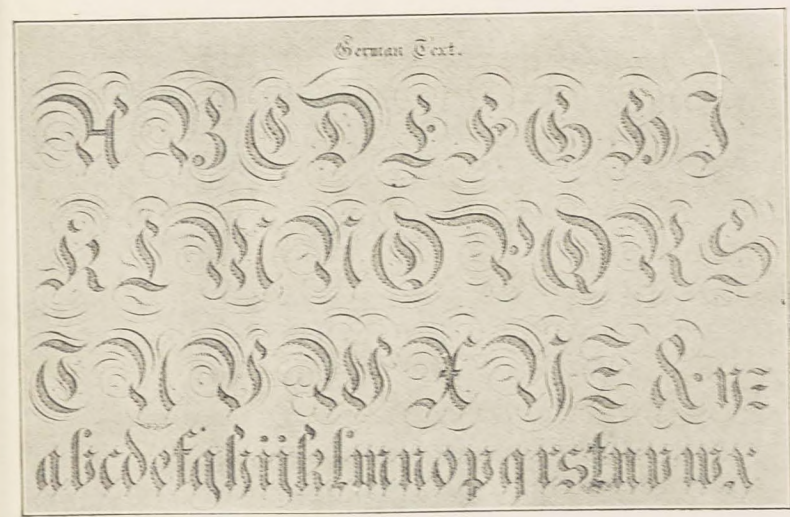 German Text.
A B C D E F G H I
K L M N O P Q R S
T U V W X Y Z & yz
abcdefghijklmnopqrstuvwx